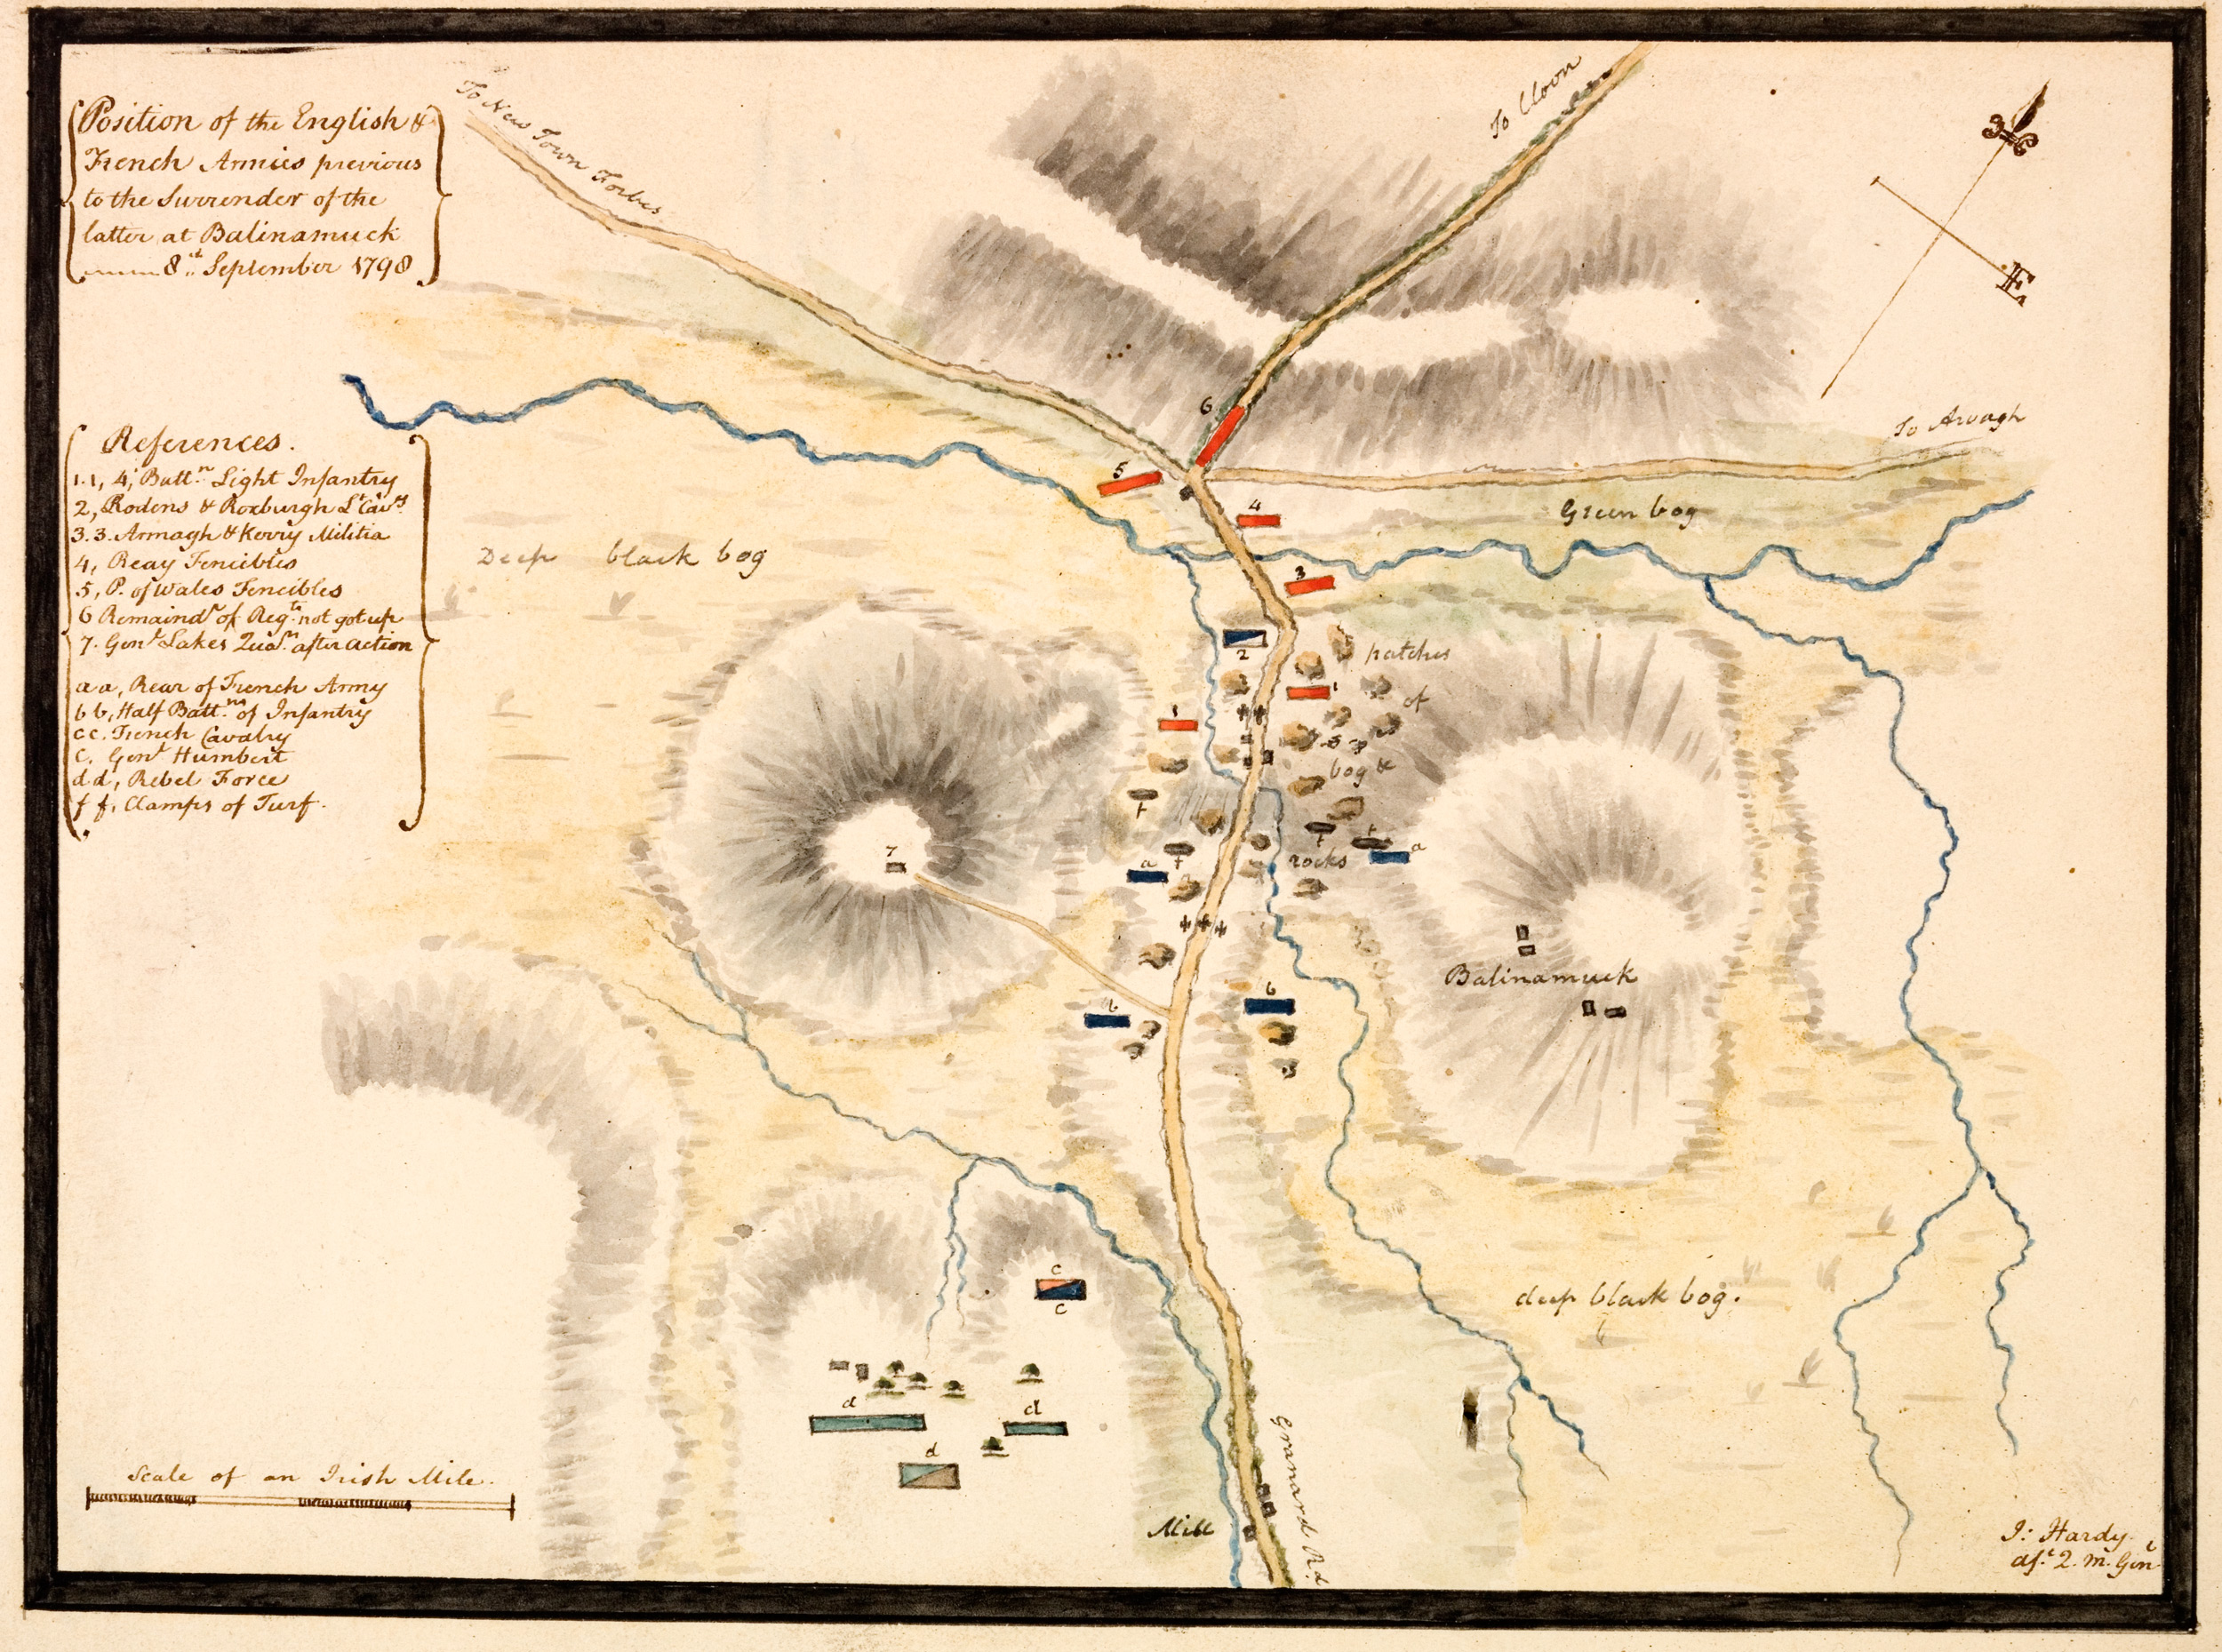 Position of the English &
French Armies previous
to the Surrender of the
latter at Balinamuck
8th September 1798
To New Town Forbes
To Cloon
E
To Arvagh
References.
1.1, 4, Battn Light Infantry
2, Rodens & Roxburgh Lt Cavs
3.3. Armagh & Kerry Militia
4, Reay Fencibles
5, P. of Wales Fencibles
6 Remaindr of Regts not got up
7. Genl Lakes after action
a a, Rear of French Army
b b, Half Battns of Infantry
c c. French Cavalry
C. Genl Humbert
d d, Rebel Force
f f, Clamps of Turf.
6
5
4
Green bog
Deep black bog
3
2
patches
1
of
1
bog &
7
f
f
f
f
rocks
a
a
Balinamuck
b
b
c
c
deep black bog.
d
d
d
Granard Rd.
Scale of an Irish Mile.
Mill
J: Hardy
ast. Q. M. Genl